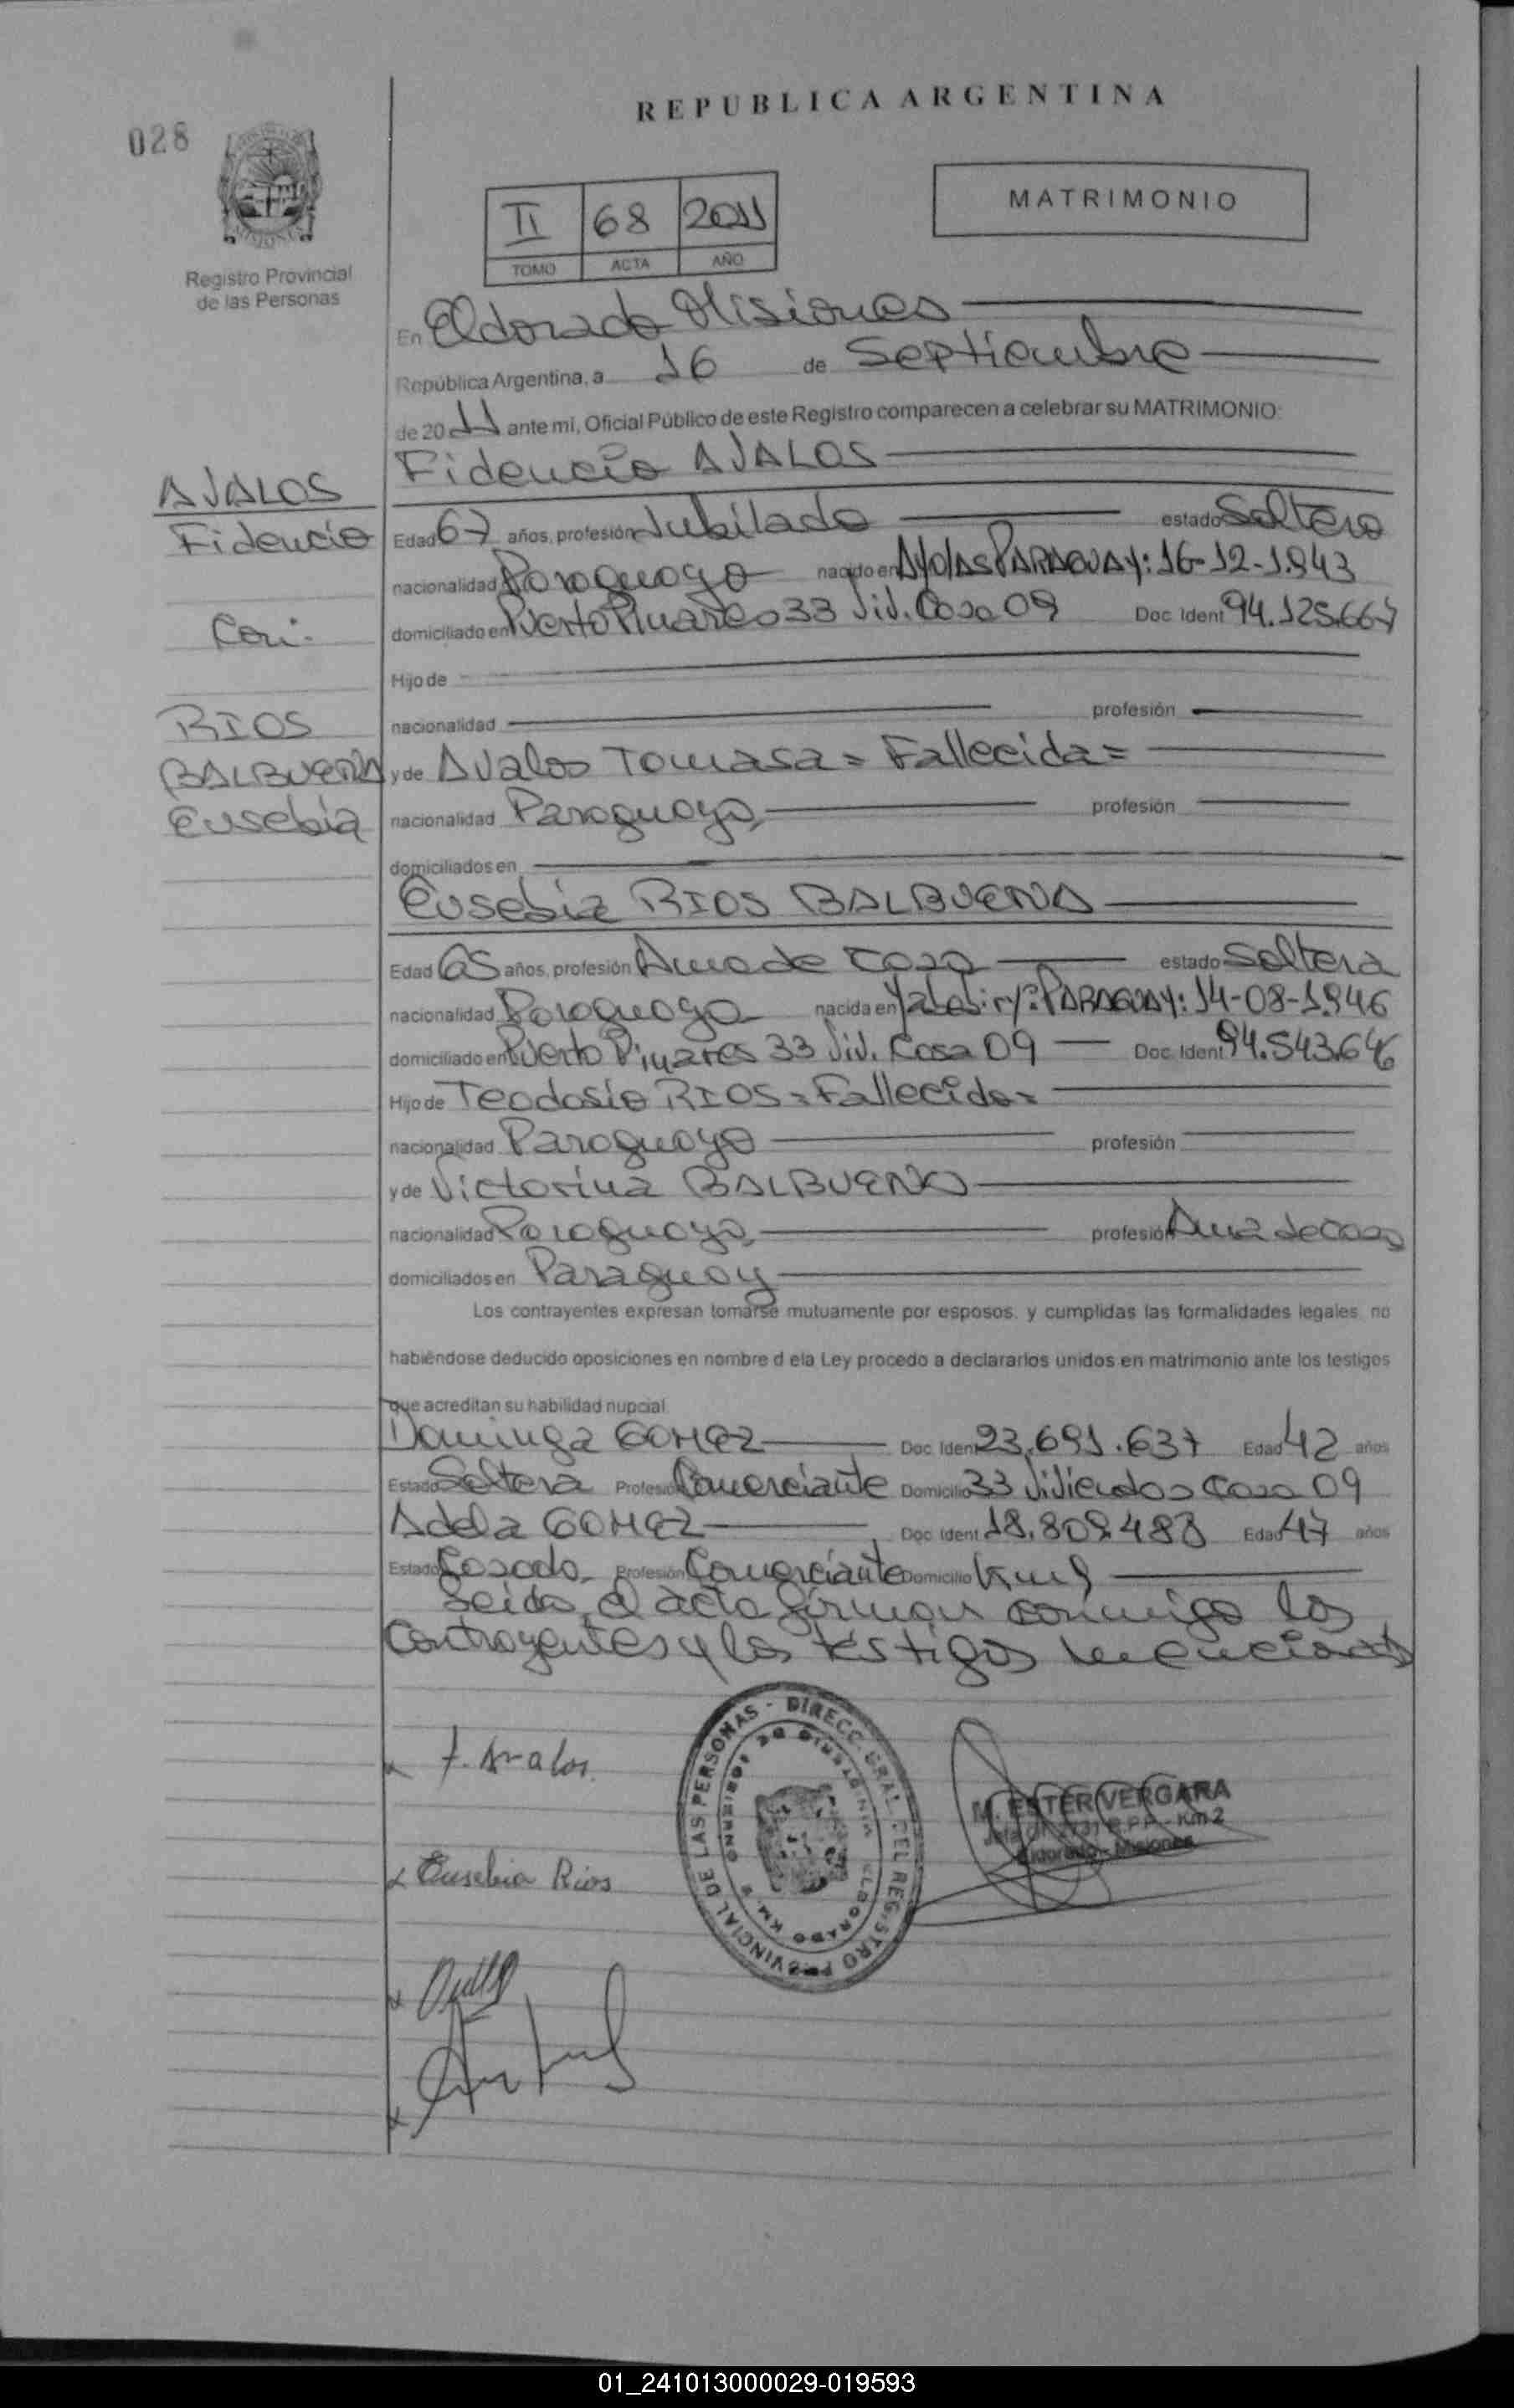 REPUBLICA ARGENTINA
028
MATRIMONIO
II 68 2011
TOMO ACTA AÑO
Registro Provincial
de las Personas
En Eldorado Misiones
República Argentina, a 16 de Septiembre
de 2011 ante mi, Oficial Público de este Registro comparecen a celebrar su MATRIMONIO:
Fidencio AVALOS
AVALOS
Fidencio
Edad 67 años, profesión Jubilado estado Soltero
nacionalidad Paraguayo nacido en Ayolas PARAGUAY: 16-12-1.943
Con:
domiciliado en Puerto Pinares 33 Viv. Casa 09 Doc Ident 94.125.667
Hijo de
RIOS
nacionalidad profesión
BALBUENA
y de Avalos Tomasa = Fallecida =
Eusebia
nacionalidad Paraguaya profesión
domiciliados en
Eusebia RIOS BALBUENA
Edad 65 años, profesión Ama de Casa estado Soltera
nacionalidad Paraguaya nacida en Yabebiry: PARAGUAY: 14-08-1.946
domiciliado en Puerto Pinares 33 Viv. Casa 09 Doc. Ident 94.543.646
Hijo de Teodosio RIOS = Fallecido =
nacionalidad Paraguayo profesión
y de Victorina BALBUENA
nacionalidad Paraguaya profesión Ama de Casa
domiciliados en Paraguay
Los contrayentes expresan tomarse mutuamente por esposos, y cumplidas las formalidades legales, no
habiéndose deducido oposiciones en nombre d ela Ley procedo a declararlos unidos en matrimonio ante los testigos
que acreditan su habilidad nupcial.
Dominga GOMEZ Doc. Ident 23.691.637 Edad 42 años
Estado Soltera Profesión Comerciante Domicilio 33 Viviendas Casa 09
Adela GOMEZ Doc. Ident 18.809.488 Edad 47 años
Estado Casada Profesión Comerciante Domicilio Km 9
Leida el acta firman conmigo los
Contrayentes y los testigos mencionados
F. Avalos
M. ESTER VERGARA
R.P.P. - Km 2
Eldorado - Misiones
Eusebia Rios
DIRECC. GRAL. DEL REGISTRO PROVINCIAL DE LAS PERSONAS
ELDORADO KM. 2
01_241013000029-019593